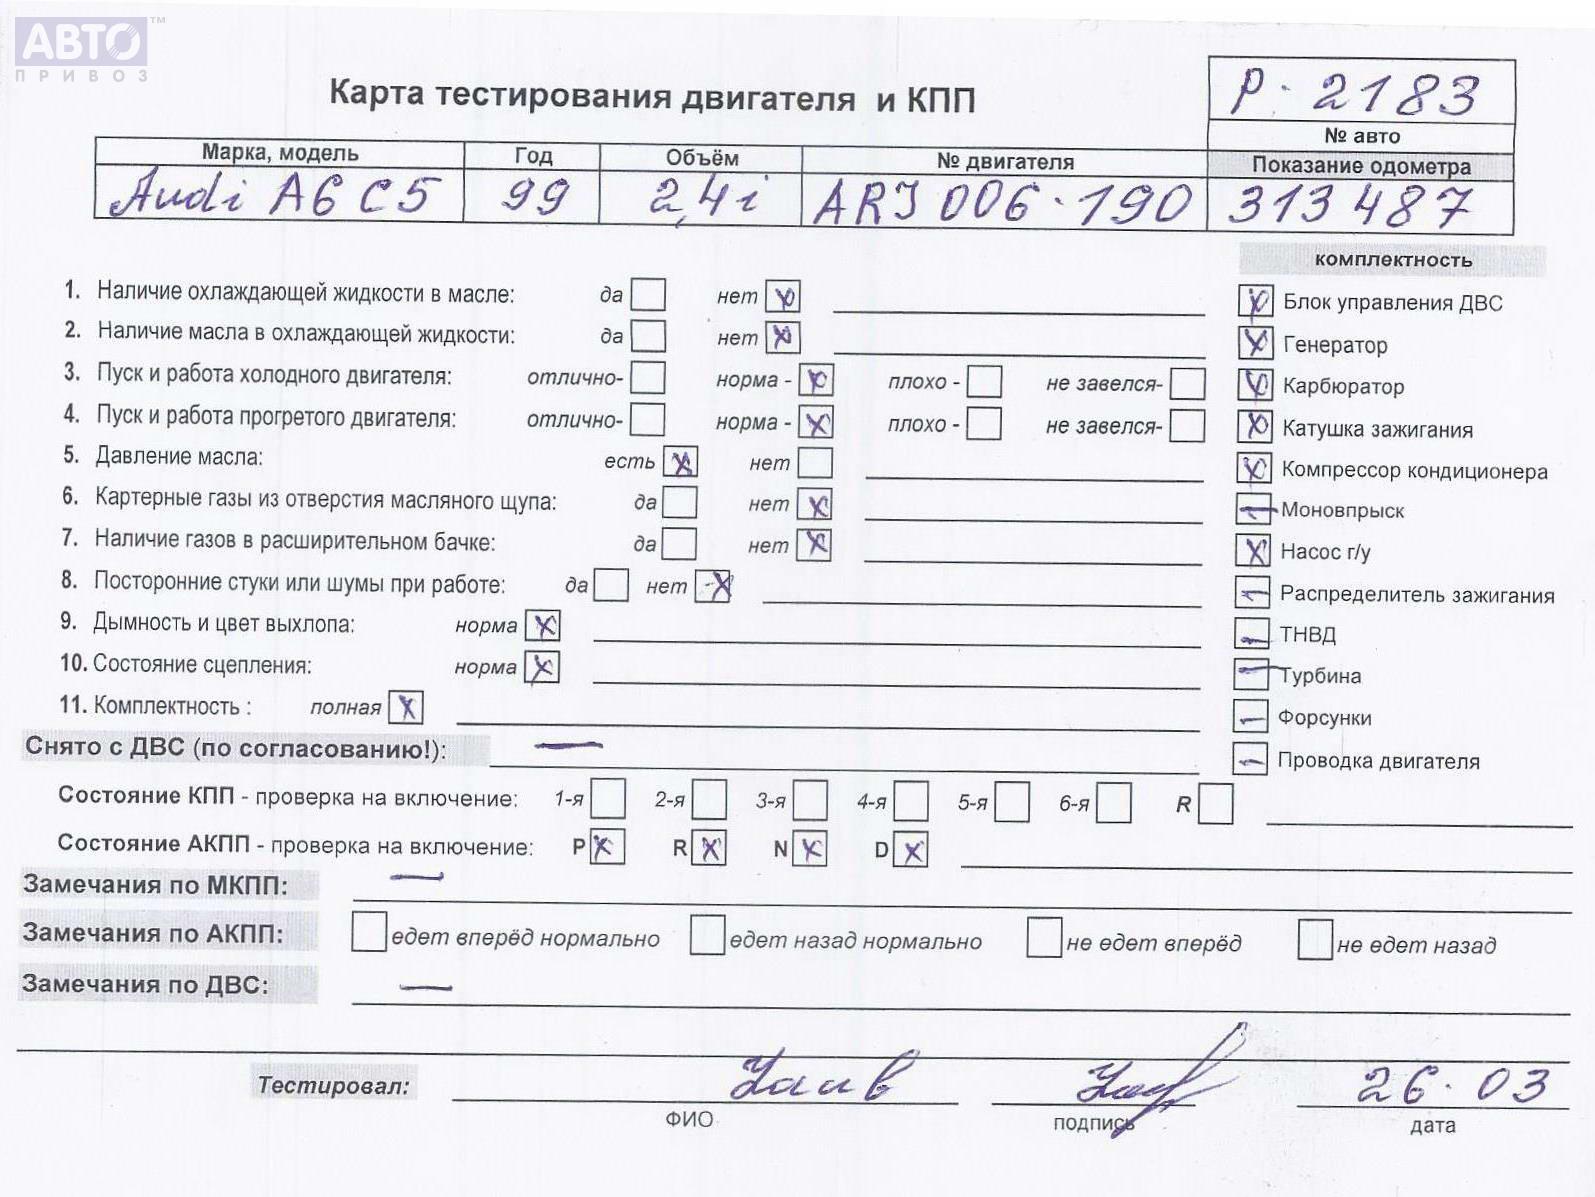 АВТО™
ПРИВОЗ
Карта тестирования двигателя и КПП
Р-2183
№ авто
Марка, модель Год Объём № двигателя Показание одометра
Audi A6 C5 99 2,4i ARJ 006·190 313487
комплектность
1. Наличие охлаждающей жидкости в масле: да нет
Блок управления ДВС
2. Наличие масла в охлаждающей жидкости: да нет
Генератор
3. Пуск и работа холодного двигателя: отлично- норма - плохо - не завелся-
Карбюратор
4. Пуск и работа прогретого двигателя: отлично- норма - плохо - не завелся-
Катушка зажигания
5. Давление масла: есть нет
Компрессор кондиционера
6. Картерные газы из отверстия масляного щупа: да нет
Моновпрыск
7. Наличие газов в расширительном бачке: да нет
Насос г/у
8. Посторонние стуки или шумы при работе: да нет
Распределитель зажигания
9. Дымность и цвет выхлопа: норма
ТНВД
10. Состояние сцепления: норма
Турбина
11. Комплектность : полная
Форсунки
Снято с ДВС (по согласованию!): —
Проводка двигателя
Состояние КПП - проверка на включение: 1-я 2-я 3-я 4-я 5-я 6-я R
Состояние АКПП - проверка на включение: P R N D
Замечания по МКПП: —
Замечания по АКПП: едет вперёд нормально едет назад нормально не едет вперёд не едет назад
Замечания по ДВС: —
Тестировал: 26·03
ФИО подпись дата